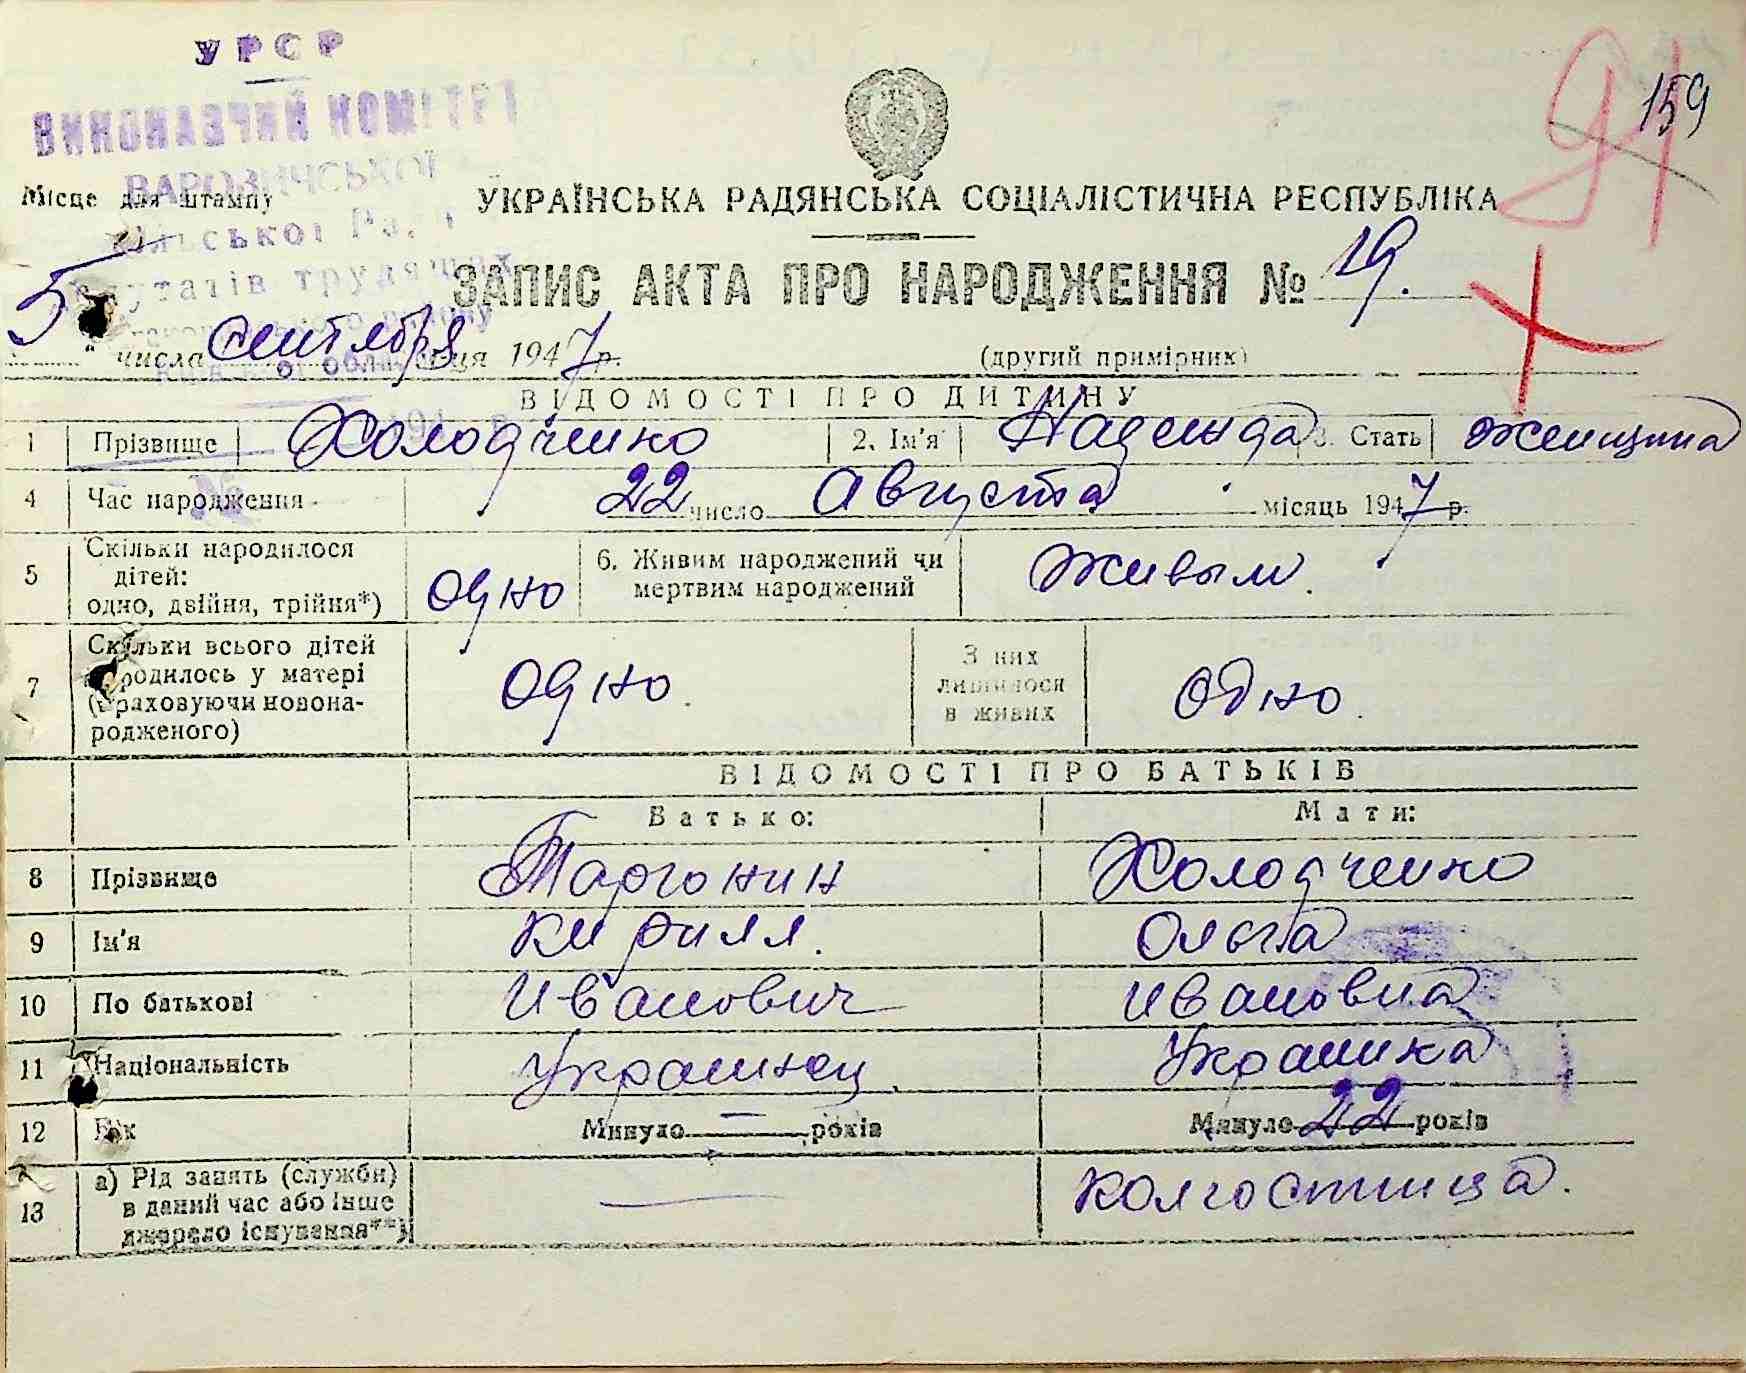 УРСР
ВИКОНАВЧИЙ КОМІТЕТ
ВАРОВИЧСЬКОЇ
Місце для штампу
сільської Ради
депутатів трудящих
159
91
УКРАЇНСЬКА РАДЯНСЬКА СОЦІАЛІСТИЧНА РЕСПУБЛІКА
ЗАПИС АКТА ПРО НАРОДЖЕННЯ № 19.
5 " числа сентября місяця 1947 р.
(другий примірник)
ВІДОМОСТІ ПРО ДИТИНУ
1 Прізвище Холодченко 2. Ім'я Надежда 3. Стать женщина
4 Час народження 22 число Августа місяць 1947 р.
5 Скільки народилося дітей: одно, двійня, трійня*) одно 6. Живим народжений чи мертвим народжений живым.
7 Скільки всього дітей народилось у матері (враховуючи новонародженого) одно. З них лишилося в живих одно.
ВІДОМОСТІ ПРО БАТЬКІВ
Батько: Мати:
8 Прізвище Таргонин Холодченко
9 Ім'я Кирилл. Ольга
10 По батькові Иванович Ивановна
11 Національність Украинец. Украинка
12 Вік Минуло — років Минуло 22 років
13 а) Рід занять (служби) в даний час або інше джерело існування**) — колгостница.